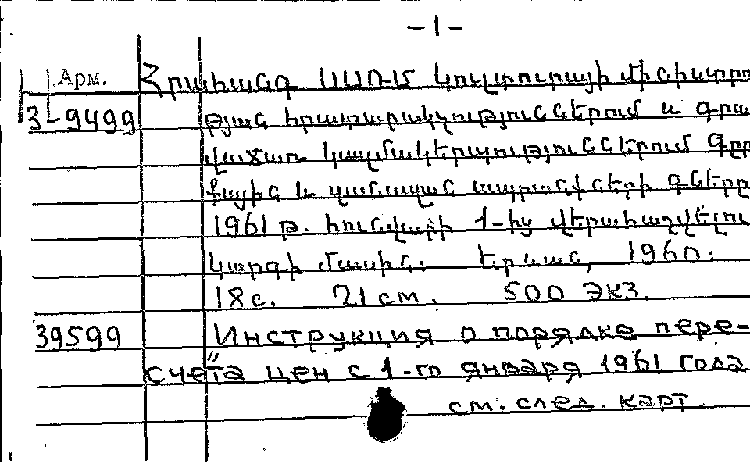 -1-
Арм. Հրահանգ ՍՍՌ-Մ Կուլտուրայի մինիստրո
3-9499 թյան հրատարակչություններում և գրա
վաճառ կազմակերպություններում գրը
քային և պանական ապրանքների գները
1961 թ. հունվարի 1-ից վերահաշվելու
կարգի մասին. Երևան, 1960.
18 с. 21 см. 500 экз.
39599 Инструкция о порядке пере-
счёта цен с 1-го января 1961 года
см. след. карт.